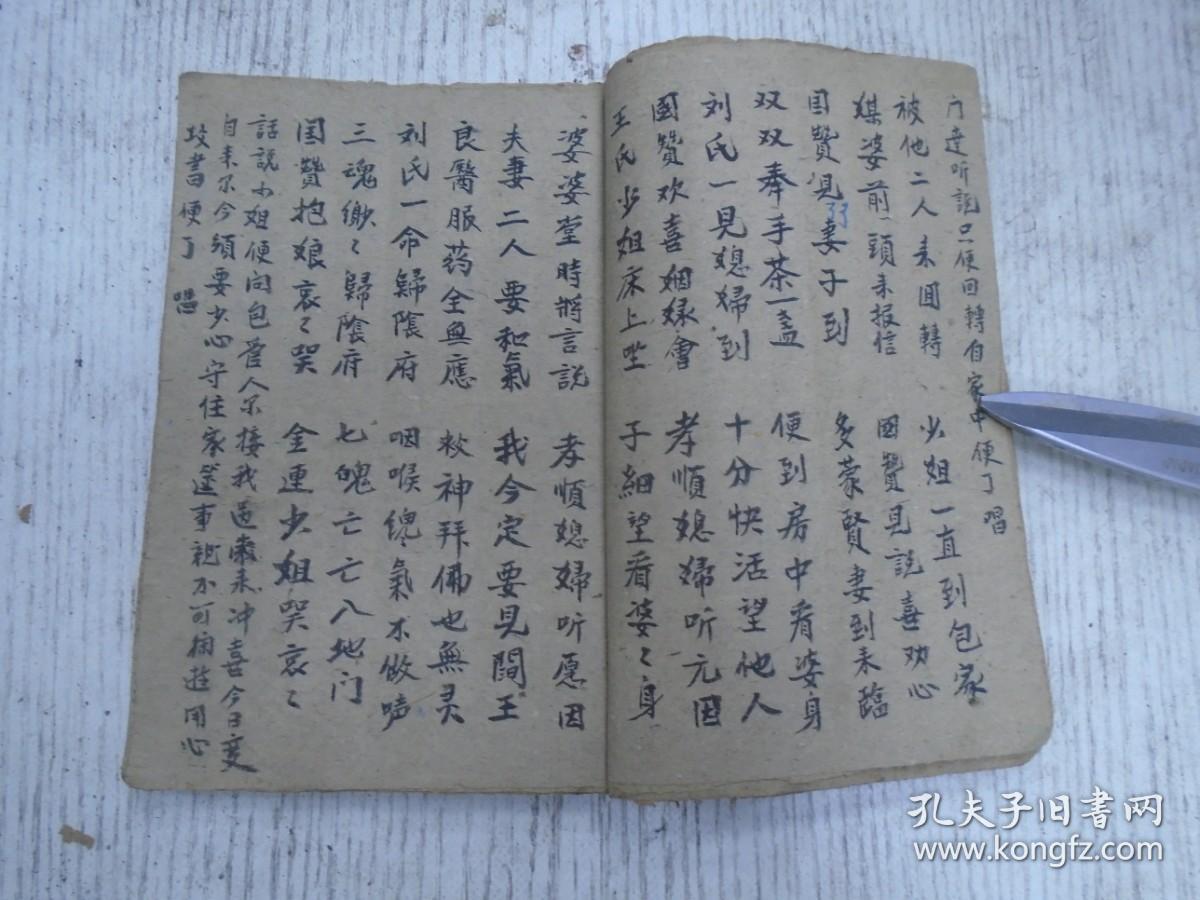 门達听說只便回轉自家中便了
被他二人来囬轉 少姐一直到包家
媒婆前頭来报信 國贊見説喜劝心
囯贊見妻子到 多蒙賢妻到来臨
双双奉手茶一盏 便到房中看婆身
刘氏一見媳婦到 十分快活望他人
國贊欢喜姻緣會 孝順媳婦听元因
王氏少姐床上坐 子細望看婆〻身
33
婆婆堂時將言説 孝順媳婦听愿因
夫妻二人要和氣 我今定要見閻王
良醫服药全無應 救神拜佛也無灵
刘氏一命歸陰府 咽喉絕氣不做声
三魂緲〻歸陰府 七魄亡亡入地门
囯贊抱娘哀〻哭 金連少姐哭哀〻
話説少姐便向包官人尔接我過來冲喜今日变
自来尔今須要少心守住家筵事親不可闲遊用心
攻書便了
孔夫子旧書网
www.kongfz.com